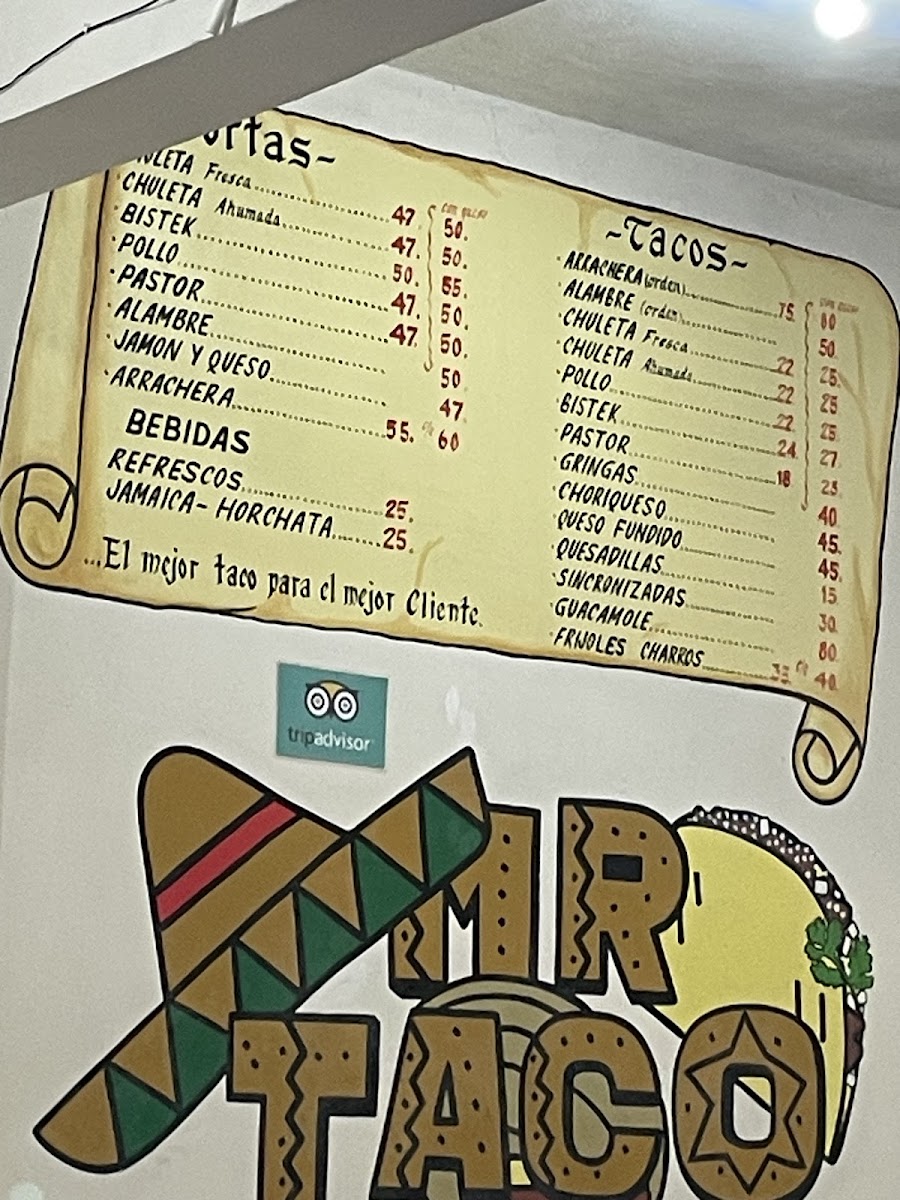 ortas-
con queso
ULETA Fresca 47. 50.
CHULETA Ahumada 47. 50.
BISTEK 50. 55.
POLLO 47. 50.
PASTOR 47. 50.
ALAMBRE 50
JAMON Y QUESO 47.
ARRACHERA 55. 60
BEBIDAS
REFRESCOS 25.
JAMAICA- HORCHATA 25.
...El mejor taco para el mejor Cliente.
-Tacos-
ARRACHERA (orden) 75. 80
ALAMBRE (orden) 50.
CHULETA Fresca 22 25.
CHULETA Ahumada 22 25
POLLO 22 25.
BISTEK 24 27.
PASTOR 18 23.
GRINGAS 40.
CHORIQUESO 45.
QUESO FUNDIDO 45.
QUESADILLAS 15.
SINCRONIZADAS 30.
GUACAMOLE 80.
FRIJOLES CHARROS 40.
tripadvisor
MR
TACO